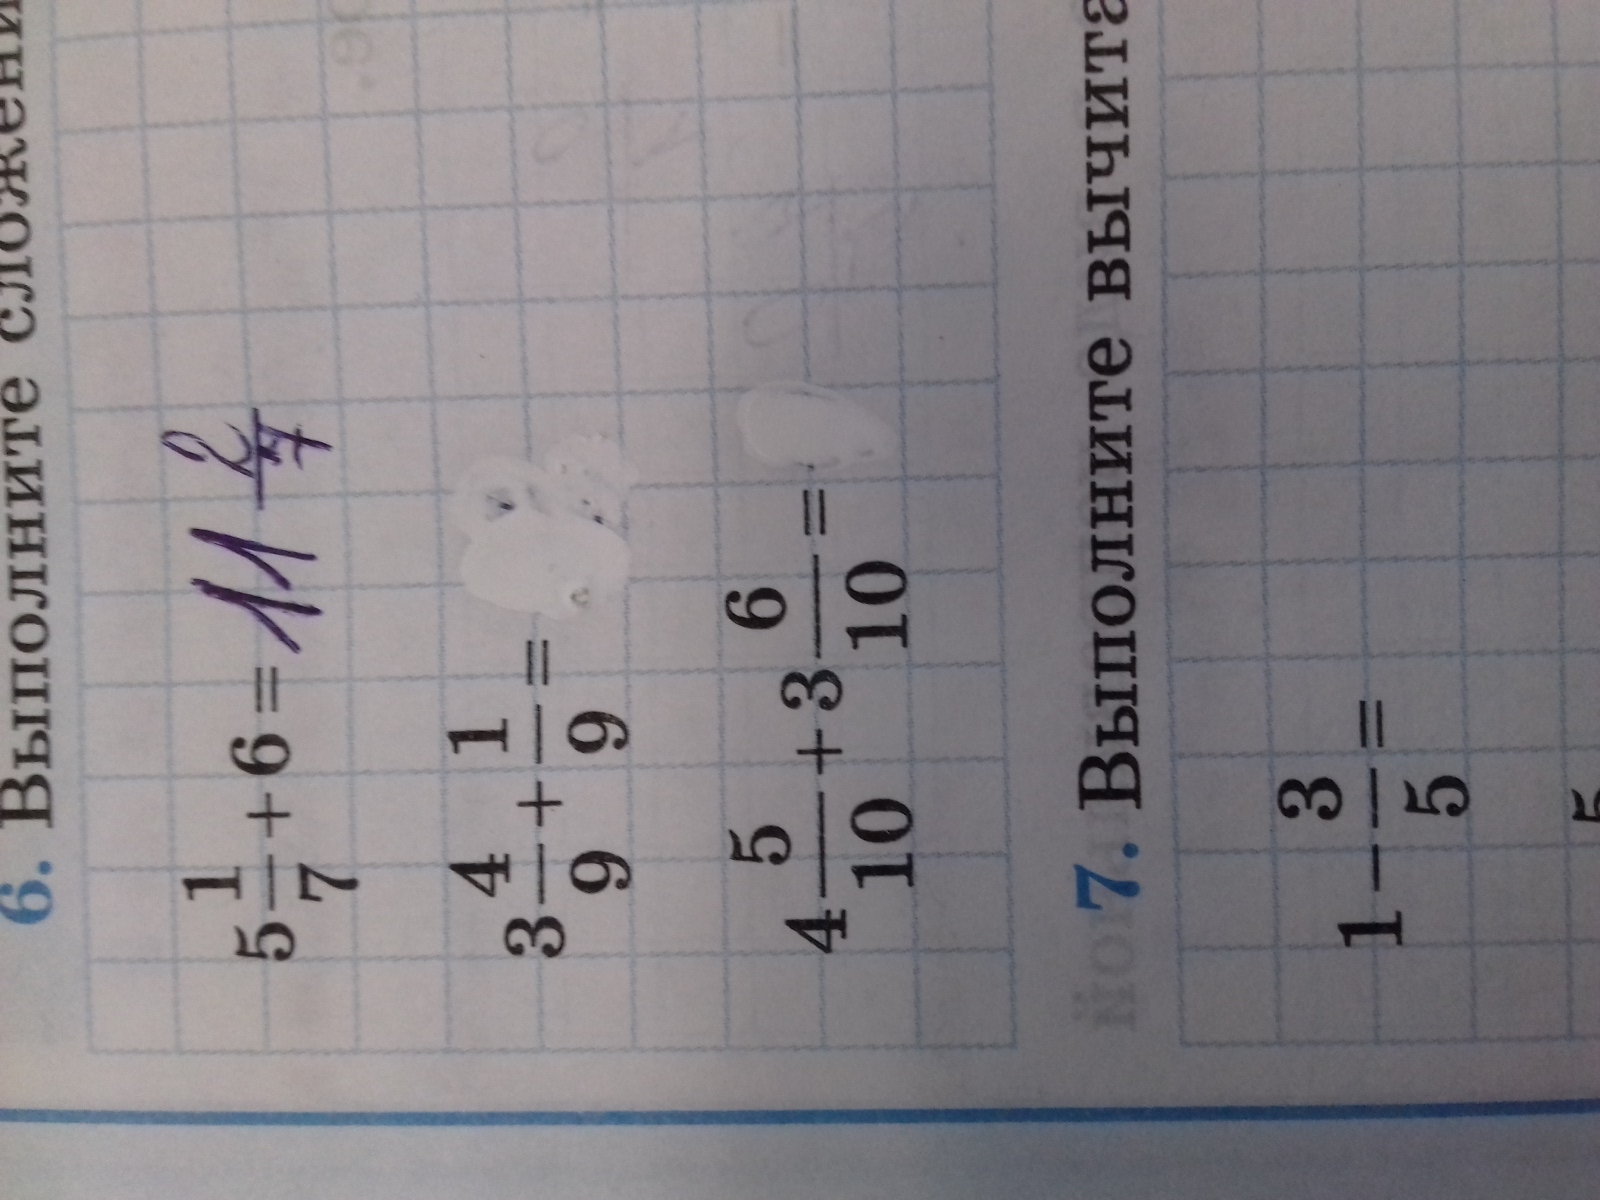 6. Выполните сложени
5 1/7 + 6 = 11 2/7
3 4/9 + 1/9 =
4 5/10 + 3 6/10 =
7. Выполните вычита
1 - 3/5 =
5